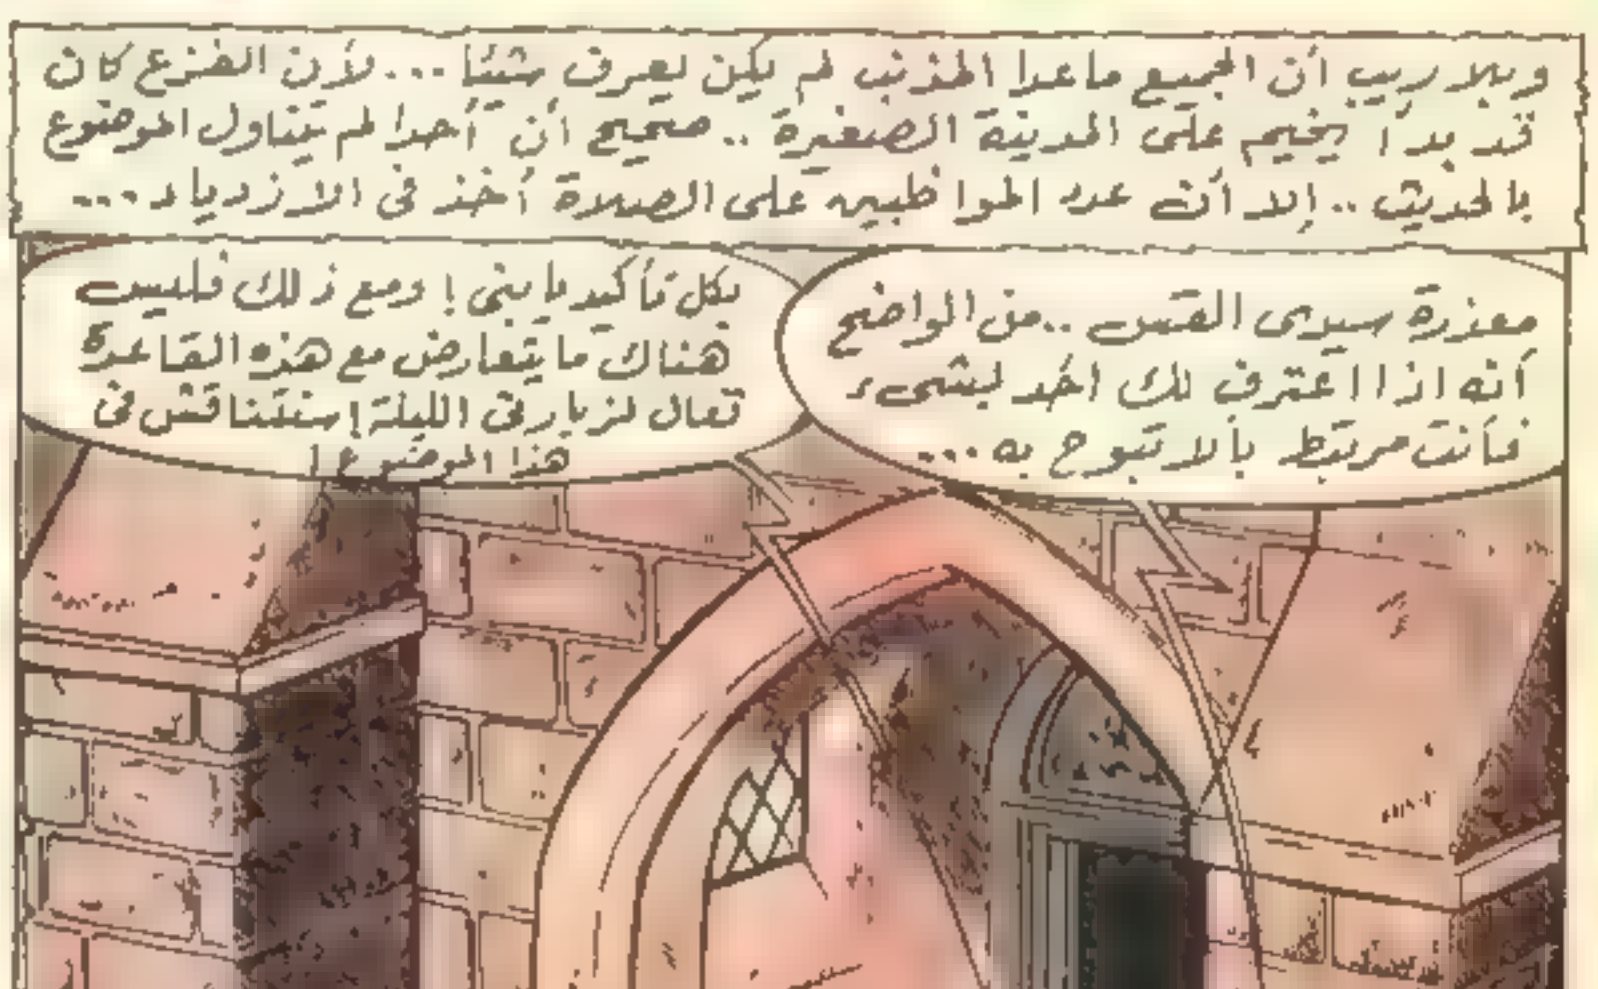 وبلا ريب أن الجميع ماعدا المذنب لم يكن يعرف شيئا ... لأن الفزع كان
قد بدأ يخيم على المدينة الصغيرة .. صحيح أن أحدا لم يتناول الموضوع
بالحديث .. إلا أن عدد المواظبين على الصلاة أخذ في الازدياد ...
معذرة سيدى القس .. من الواضح
أنه اذا اعترف لك احد بشىء
فأنت مرتبط بألا تبوح به ...
بكل تأكيد يا بنى ! ومع ذلك فليس
هناك ما يتعارض مع هذه القاعدة
تعال لزيارتى الليلة ! سنتناقش فى
هذا الموضوع !